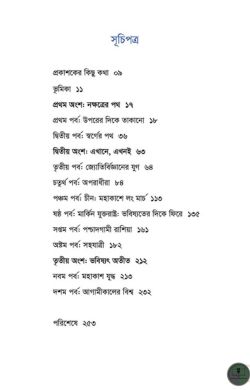 সূচিপত্র
প্রকাশকের কিছু কথা ০৯
ভূমিকা ১১
প্রথম অংশ: নক্ষত্রের পথ ১৭
প্রথম পর্ব: উপরের দিকে তাকানো ১৮
দ্বিতীয় পর্ব: স্বর্গের পথ ৩৬
দ্বিতীয় অংশ: এখানে, এখনই ৬৩
তৃতীয় পর্ব: জ্যোতির্বিজ্ঞানের যুগ ৬৪
চতুর্থ পর্ব: অপরাধীরা ৮৪
পঞ্চম পর্ব: চীন: মহাকাশে লং মার্চ ১১৩
ষষ্ঠ পর্ব: মার্কিন যুক্তরাষ্ট্র: ভবিষ্যতের দিকে ফিরে ১৩৫
সপ্তম পর্ব: পশ্চাদগামী রাশিয়া ১৬১
অষ্টম পর্ব: সহযাত্রী ১৮২
তৃতীয় অংশ: ভবিষ্যৎ অতীত ২১২
নবম পর্ব: মহাকাশ যুদ্ধ ২১৩
দশম পর্ব: আগামীকালের বিশ্ব ২৩২
পরিশেষে ২৫৩